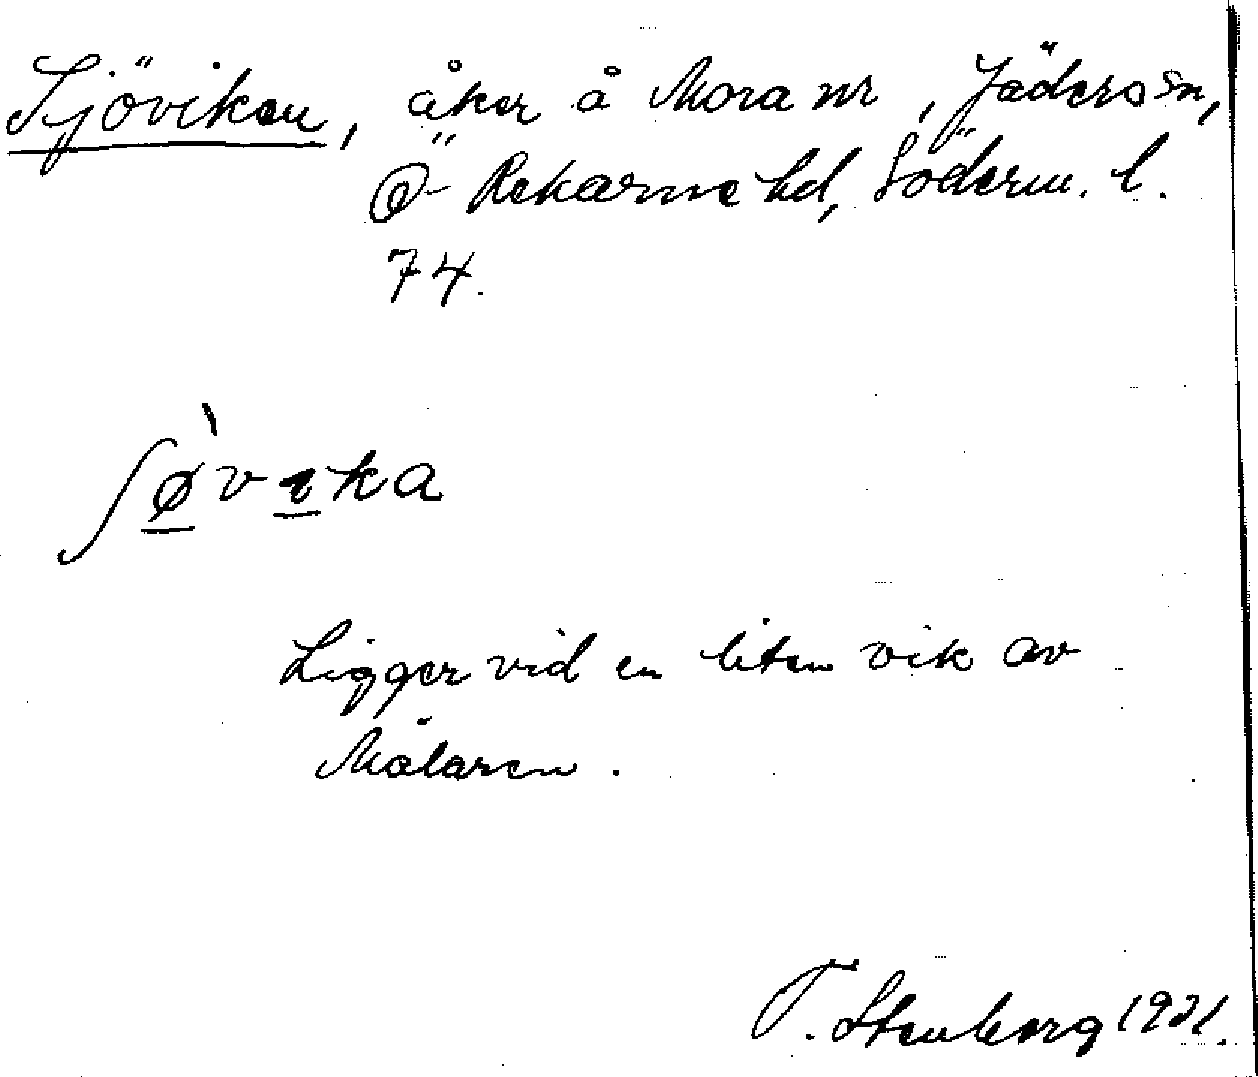 Sjöviken, åker å Mora nr , Jäders sn,
Ö- Rekarne hd, Söderm. l.
74.
ʃø̀vıka
Ligger vid en liten vik av
Mälaren.
T. Stenberg 1931.